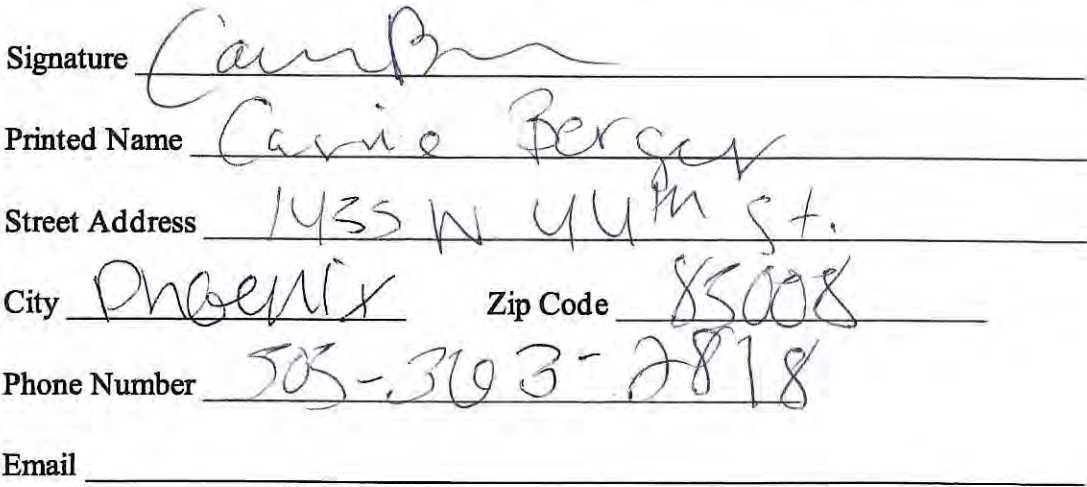 Signature
Printed Name Carrie Berger
Street Address 1435 N 44th St.
City Phoenix Zip Code 85008
Phone Number 505-363-2818
Email